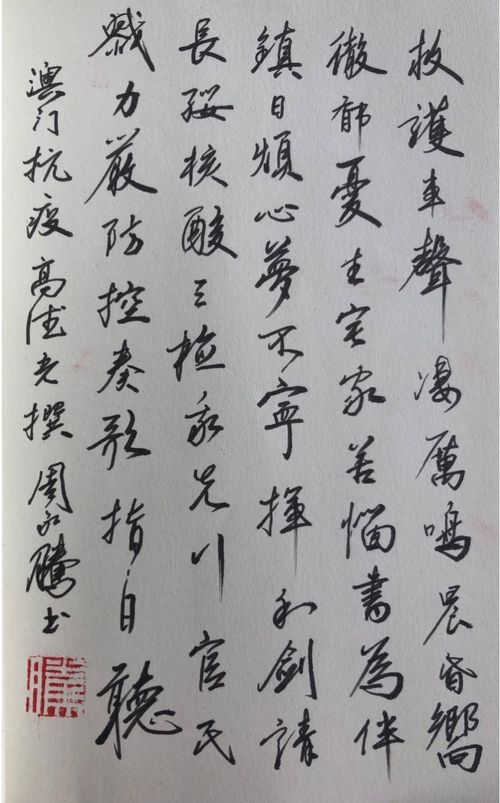 救護車聲凄厲鳴晨昏嚮
徹郁憂生宅家苦惱書為伴
鎮日煩心夢不寧揮利劍請
長纓核酸三檢我先行官民
戮力嚴防控奏歌指日聽
澳门抗疫高德光撰周永騰书